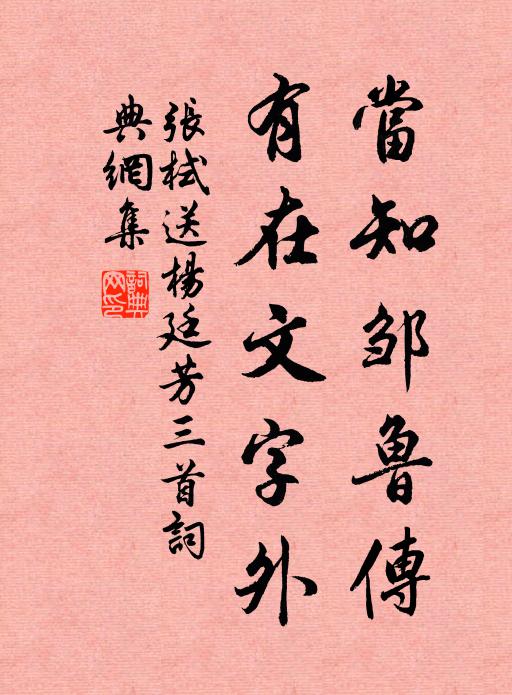 當知邹魯傳
有在文字外
張栻送楊廷芳三首詞
典網集
詞典网印